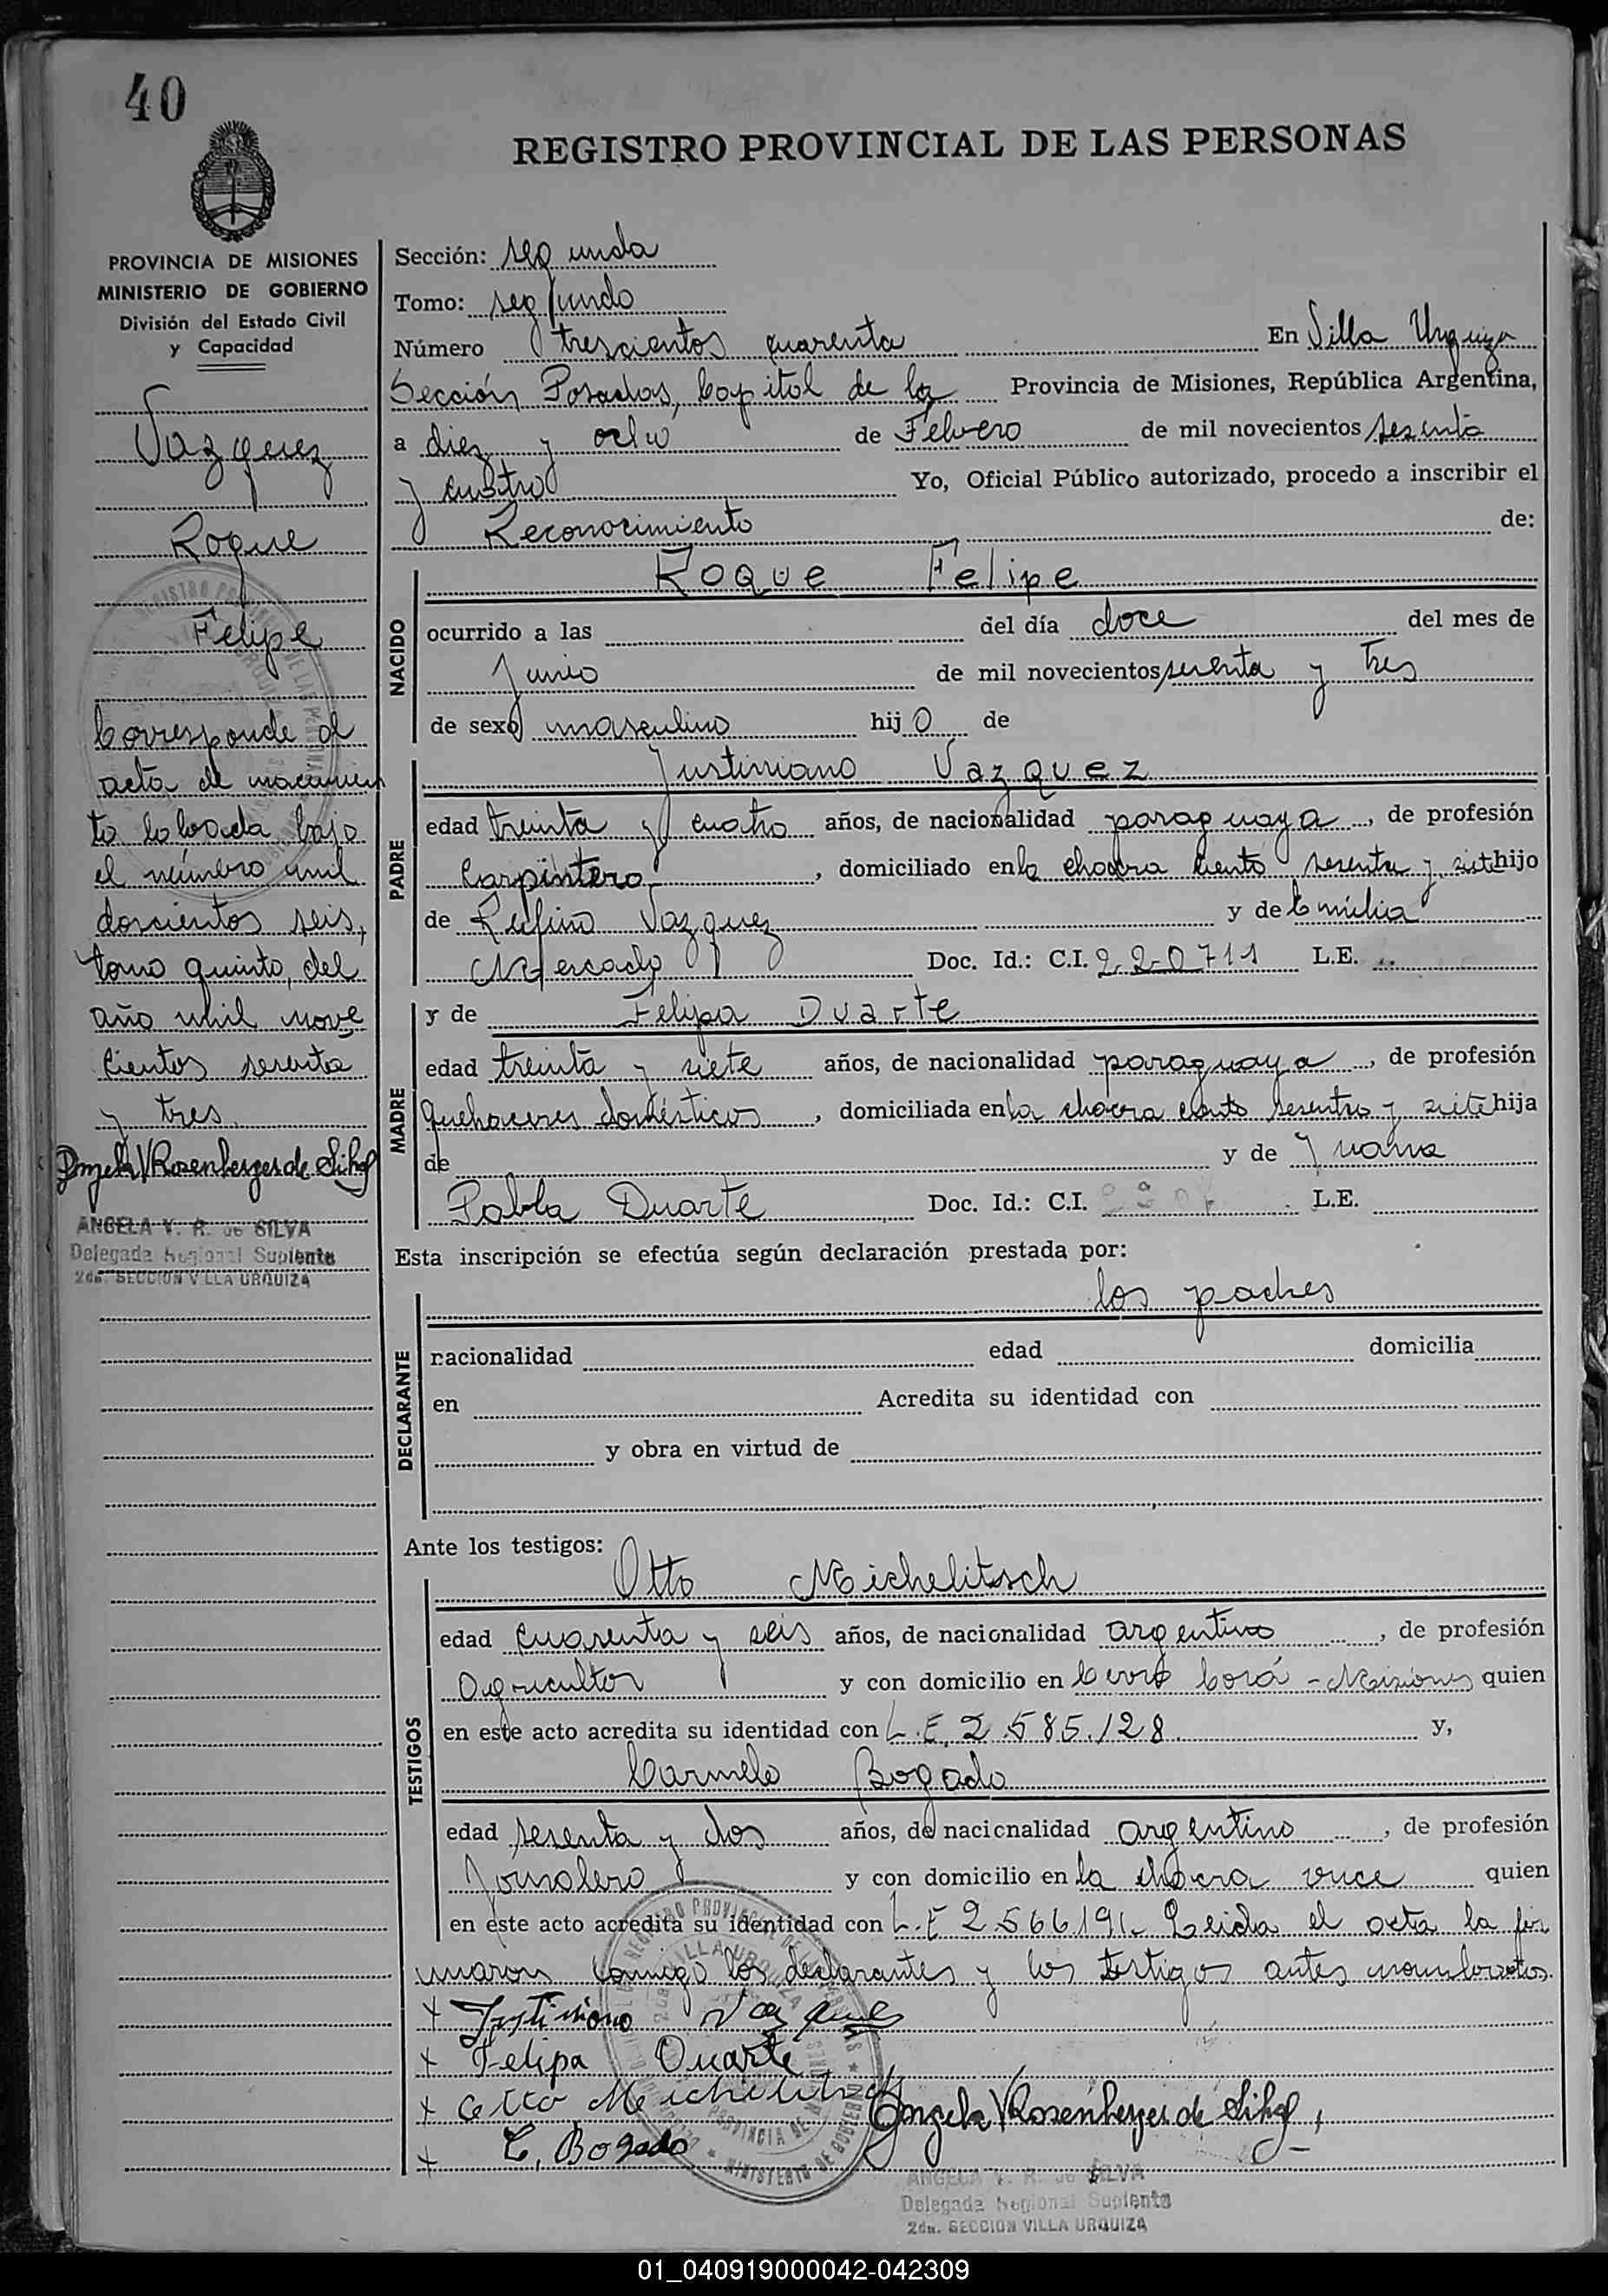 40
REGISTRO PROVINCIAL DE LAS PERSONAS
PROVINCIA DE MISIONES
MINISTERIO DE GOBIERNO
División del Estado Civil
y Capacidad
Vazquez
Roque
Felipe
Corresponde al
acta de nacimien
to labrada bajo
el número mil
doscientos seis,
tomo quinto, del
año mil nove
cientos sesenta
y tres.
Angela V Rosenberger de Silva
ANGELA V. R. de SILVA
Delegada Regional Suplente
2da. SECCION VILLA URQUIZA
Sección: segunda
Tomo: segundo
Número trescientos cuarenta En Villa Urquiza
Sección Posadas, Capital de la Provincia de Misiones, República Argentina,
a diez y ocho de Febrero de mil novecientos sesenta
y cuatro Yo, Oficial Público autorizado, procedo a inscribir el
Reconocimiento de:
NACIDO
Roque Felipe
ocurrido a las del día doce del mes de
Junio de mil novecientos sesenta y tres
de sexo masculino hijo de
PADRE
Justiniano Vazquez
edad treinta y cuatro años, de nacionalidad paraguaya, de profesión
Carpintero, domiciliado en la chacra ciento sesenta y siete hijo
de Rufino Vazquez y de Emilia
Mercado Doc. Id.: C.I. 220711 L.E.
MADRE
y de Felipa Duarte
edad treinta y siete años, de nacionalidad paraguaya, de profesión
quehaceres domésticos, domiciliada en la chacra ciento sesenta y siete hija
de y de Juana
Pabla Duarte Doc. Id.: C.I. L.E.
Esta inscripción se efectúa según declaración prestada por:
DECLARANTE
los padres
nacionalidad edad domicilia
en Acredita su identidad con
y obra en virtud de
Ante los testigos:
TESTIGOS
Otto Michelitsch
edad cuarenta y seis años, de nacionalidad argentino, de profesión
agricultor y con domicilio en Cerro Corá - Misiones quien
en este acto acredita su identidad con L.E. 2.585.128 y,
Carmelo Bogado
edad sesenta y dos años, de nacionalidad argentino, de profesión
Jornalero y con domicilio en la chacra once quien
en este acto acredita su identidad con L.E 2.566.191.- Leida el acta la fir
maron conmigo los declarantes y los testigos antes nombrados.
+ Justiniano Vazques
+ Felipa Duarte
+ Otto Michelitsch
Angela V Rosenberger de Silva
+ C. Bogado
ANGELA V. R. de SILVA
Delegada Regional Suplente
2da. SECCION VILLA URQUIZA
01_040919000042-042309